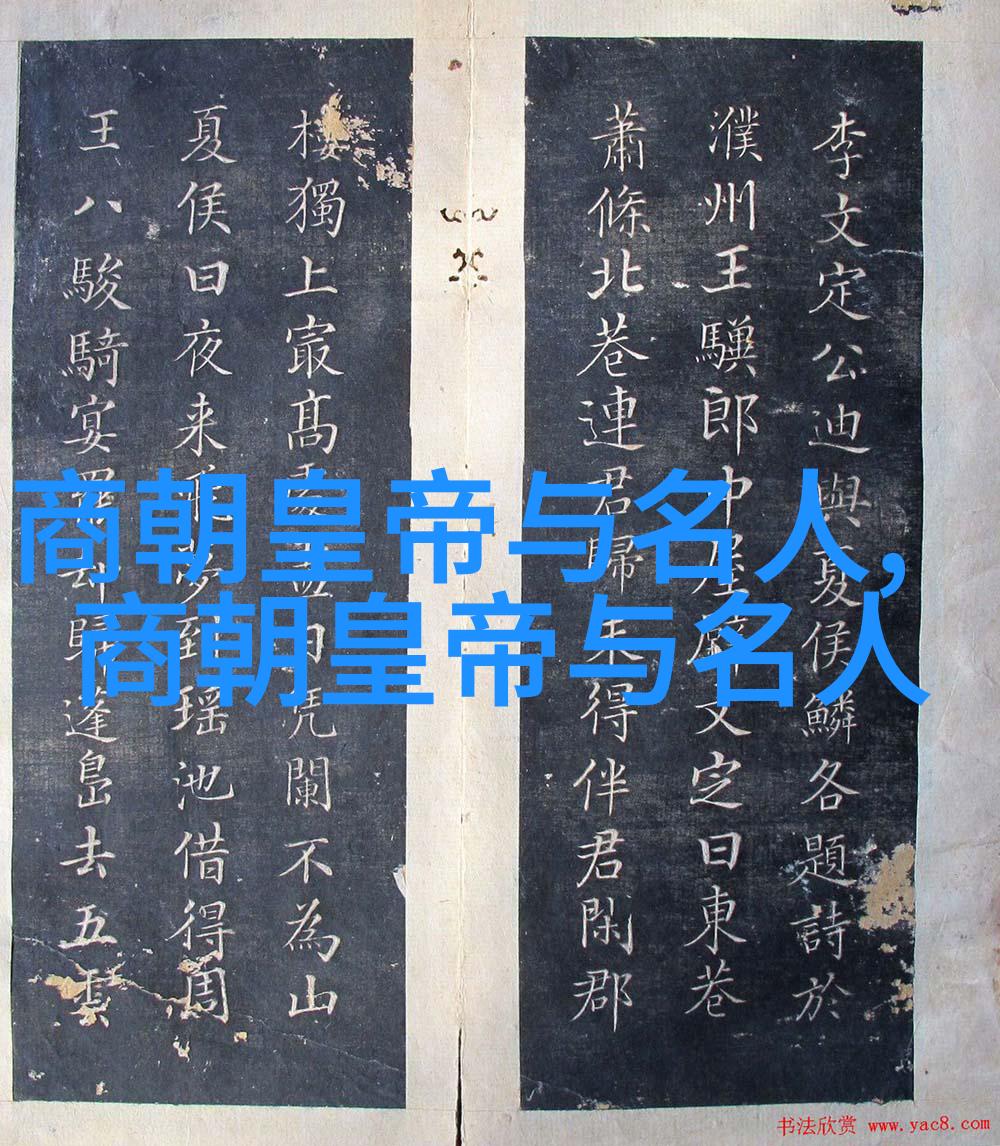 李文定公迪與夏侯鱗各題詩於
濮州王驥郎中屋壁文定曰東巷
蕭條北巷連君歸未得伴君閑郡
樓獨上最高 不為山
夏侯曰夜来 夢到瑶池借得周
王八駿騎宴罷却歸蓬島去五雲
商朝皇帝与名人,
商朝皇帝与名人
书法欣赏 www.yac8.com